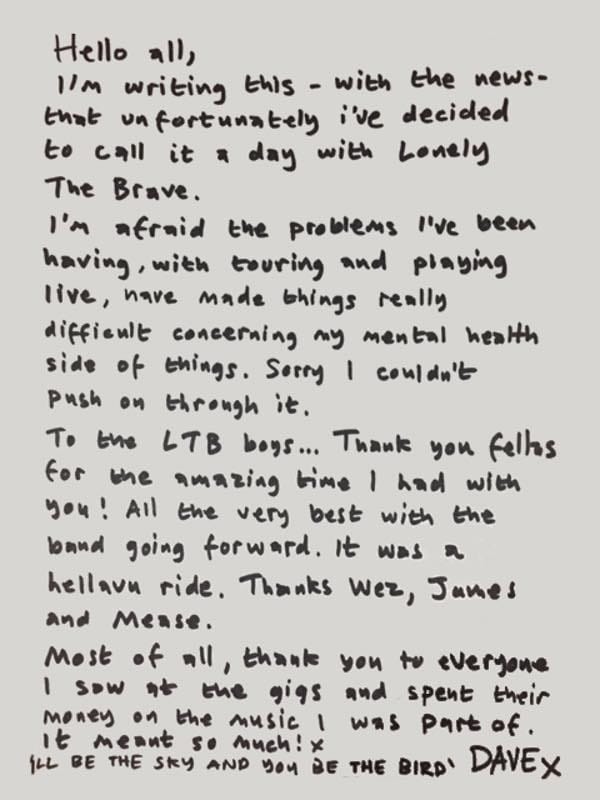 Hello all,
I'm writing this - with the news-
that unfortunately i've decided
to call it a day with Lonely
The Brave.
I'm afraid the problems I've been
having, with touring and playing
live, have made things really
difficult concerning my mental health
side of things. Sorry I couldn't
push on through it.
To the LTB boys... Thank you fellas
for the amazing time I had with
you! All the very best with the
band going forward. It was a
hellavu ride. Thanks Wez, James
and Mease.
Most of all, thank you to everyone
I saw at the gigs and spent their
money on the music I was part of.
It meant so much! x
'ILL BE THE SKY AND YOU BE THE BIRD' DAVE x